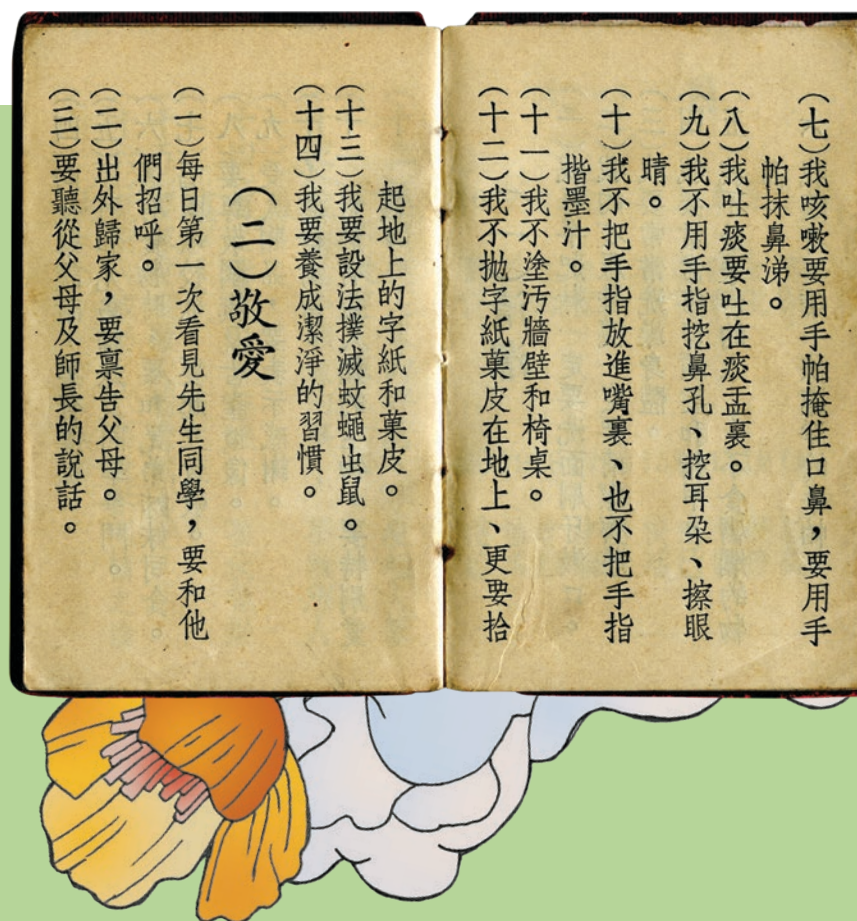 (七)我咳嗽要用手帕掩住口鼻,要用手
帕抹鼻涕。
(八)我吐痰要吐在痰盂裏。
(九)我不用手指挖鼻孔、挖耳朶、擦眼
睛。
(十)我不把手指放進嘴裏、也不把手指
揩墨汁。
(十一)我不塗汚牆壁和椅桌。
(十二)我不拋字紙菓皮在地上、更要拾
起地上的字紙和菓皮。
(十三)我要設法撲滅蚊蠅虫鼠。
(十四)我要養成潔淨的習慣。
(二)敬愛
(一)每日第一次看見先生同學,要和他
們招呼。
(二)出外歸家,要禀告父母。
(三)要聽從父母及師長的說話。